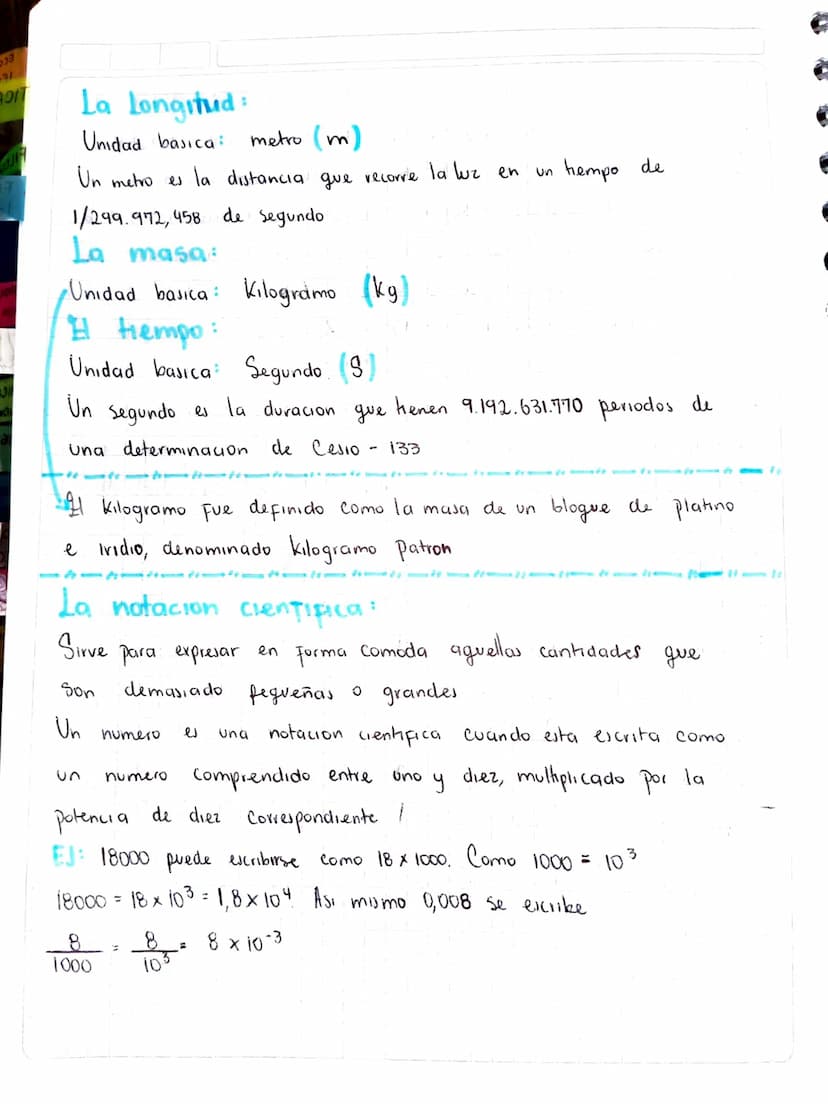 La Longitud:
Unidad basica: metro (m)
Un metro es la distancia que recorre la luz en un tiempo de
1/299.972,458 de segundo
La masa:
Unidad basica: Kilogramo (kg)
El tiempo:
Unidad basica: Segundo (S)
Un segundo es la duracion que tienen 9.192.631.770 periodos de
una determinacion de Cesio - 133
El kilogramo fue definido como la masa de un bloque de platino
e iridio, denominado kilogramo Patron
La notacion cientifica:
Sirve para expresar en forma comoda aquellas cantidades que
son demasiado pequeñas o grandes
Un numero es una notacion cientifica cuando esta escrita como
un numero comprendido entre uno y diez, multiplicado por la
potencia de diez correspondiente
EJ: 18000 puede escribirse como 18 x 1000. Como 1000 = 10³
18000 = 18 x 10³ = 1,8 x 10⁴ Asi mismo 0,008 se escribe
8/1000 = 8/10³ = 8 x 10⁻³